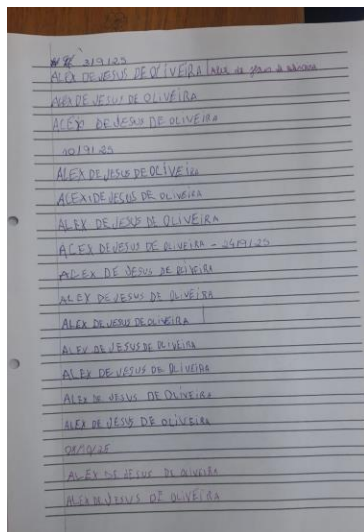 3/9/25
ALEX DE JESUS DE OLIVEIRA
ALEX DE JESUS DE OLIVEIRA
ALEX DE JESUS DE OLIVEIRA
10/9/25
ALEX DE JESUS DE OLIVEIRA
ALEX DE JESUS DE OLIVEIRA
ALEX DE JESUS DE OLIVEIRA
ALEX DE JESUS DE OLIVEIRA - 24/9/25
ALEX DE JESUS DE OLIVEIRA
ALEX DE JESUS DE OLIVEIRA
ALEX DE JESUS DE OLIVEIRA
ALEX DE JESUS DE OLIVEIRA
ALEX DE JESUS DE OLIVEIRA
ALEX DE JESUS DE OLIVEIRA
ALEX DE JESUS DE OLIVEIRA
ALEX DE JESUS DE OLIVEIRA
ALEX DE JESUS DE OLIVEIRA